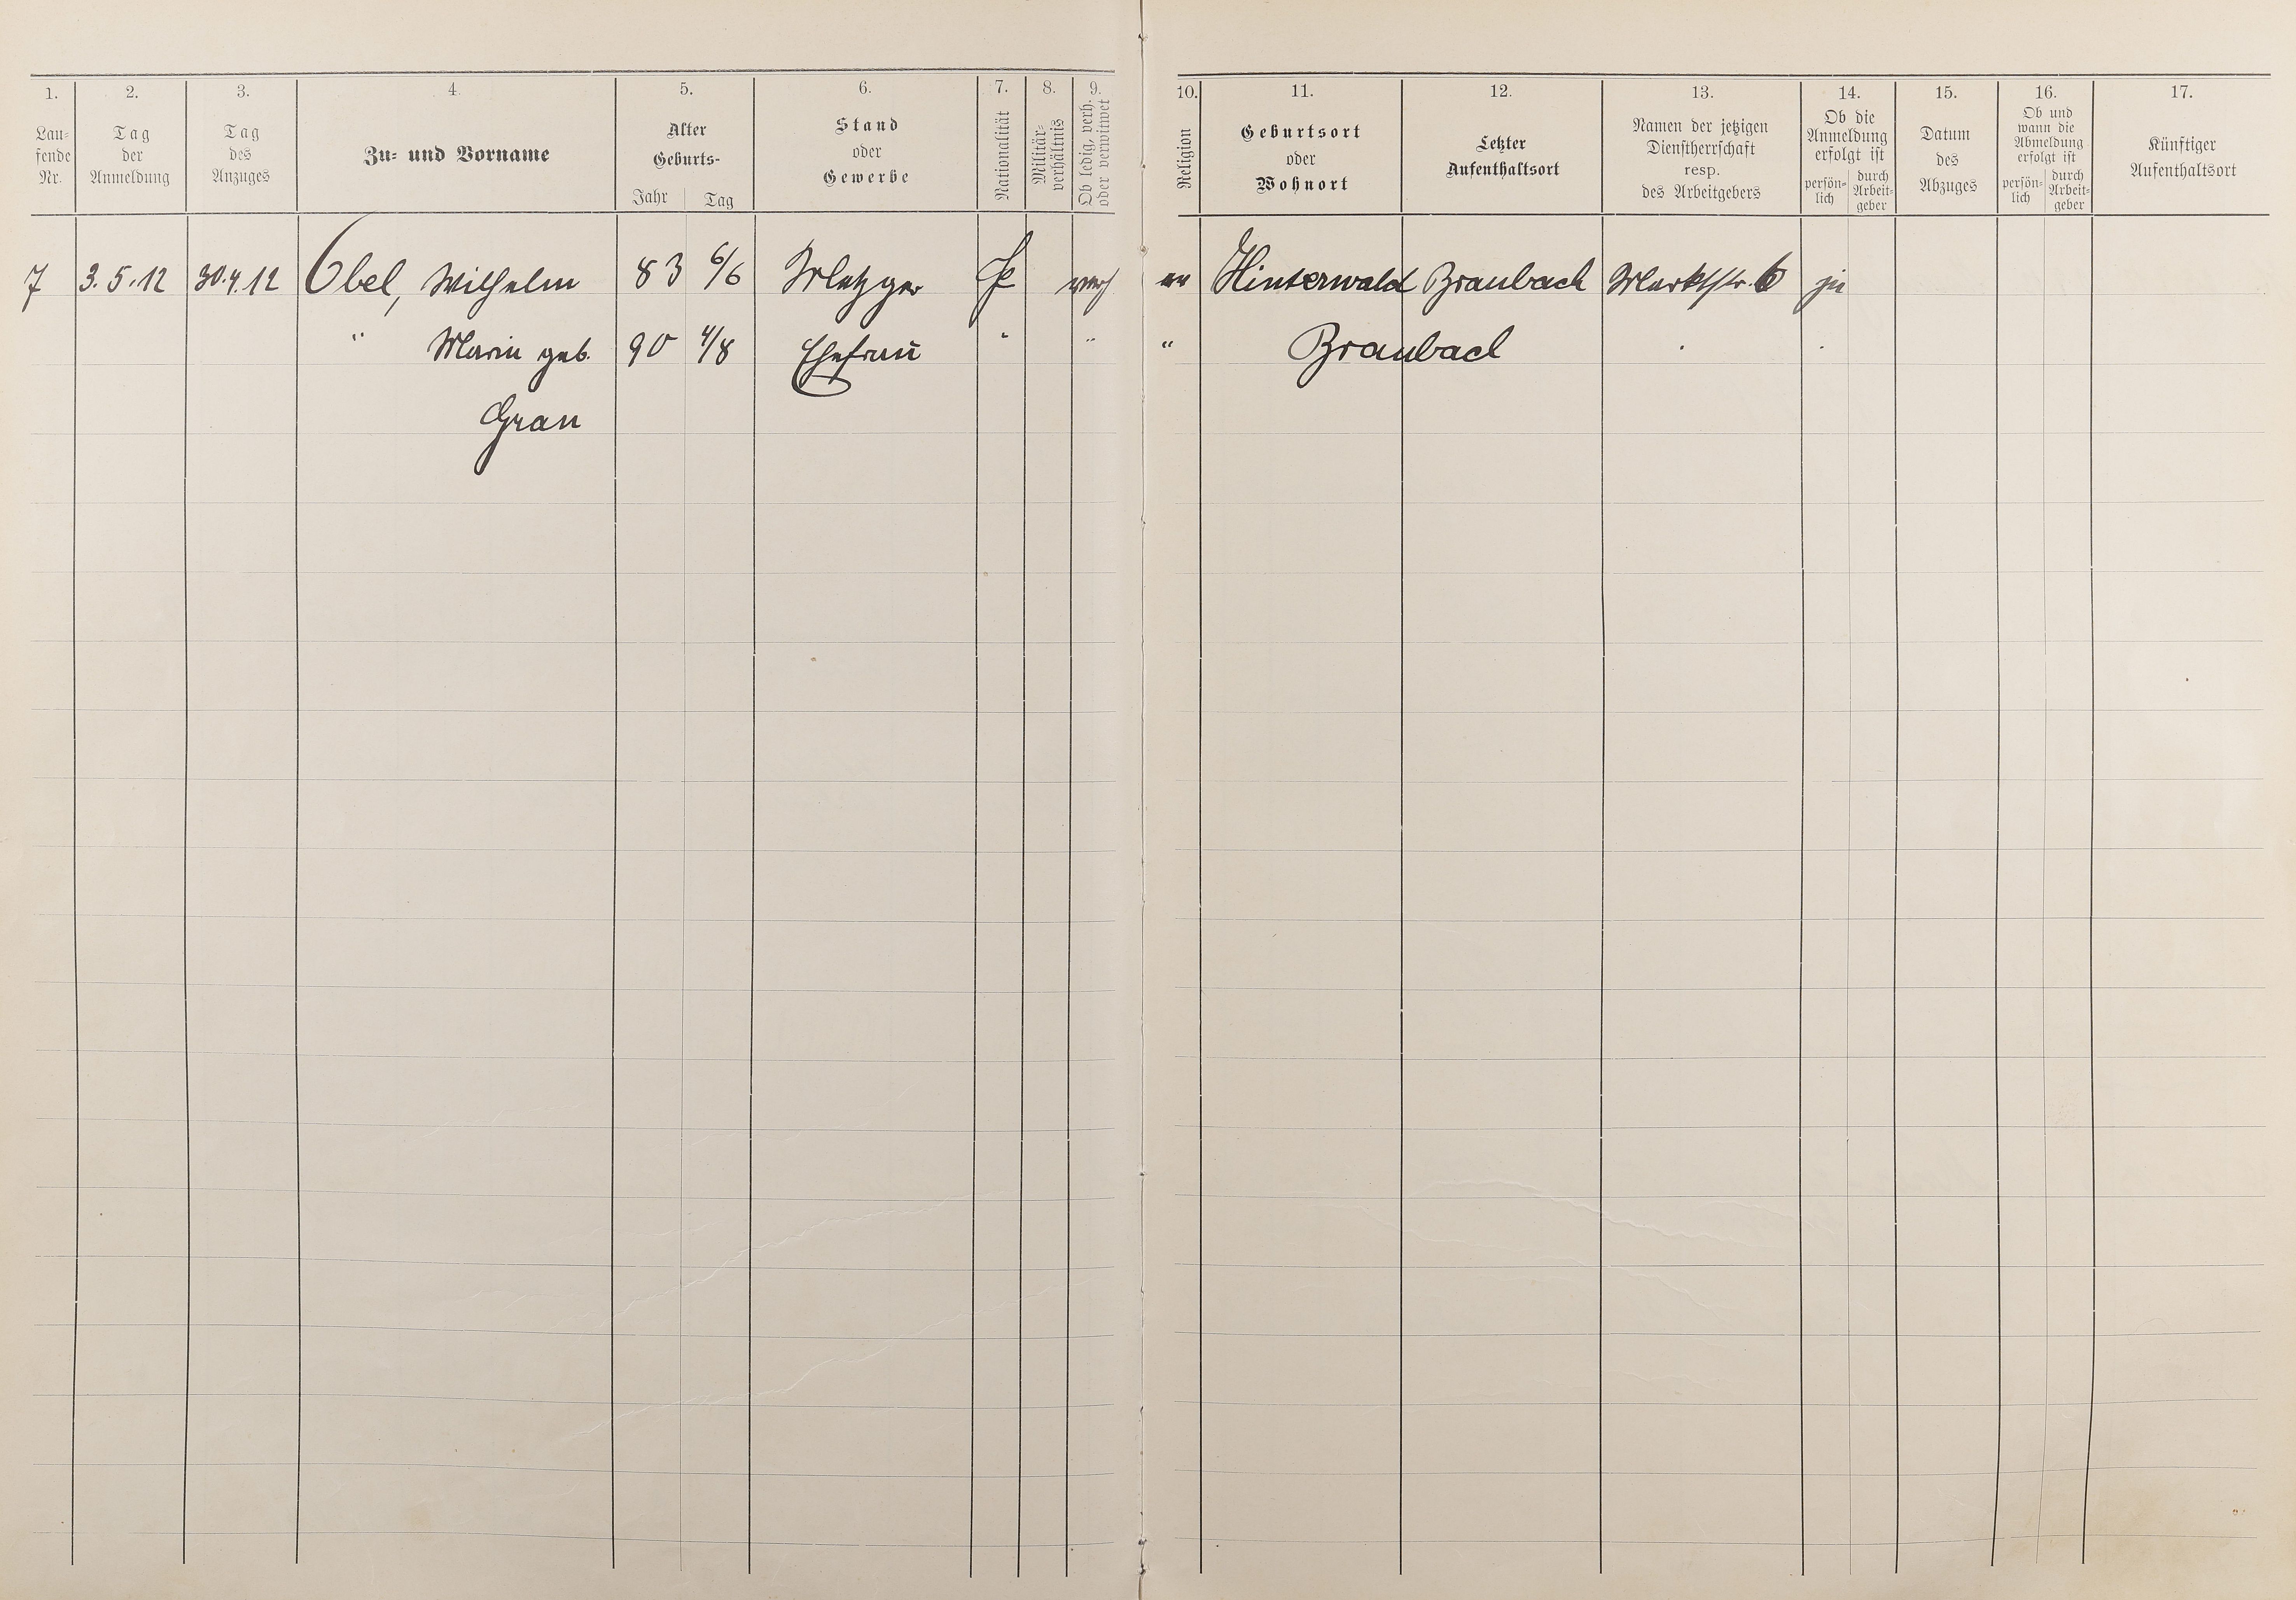 1. 2. 3. 4. 5. 6. 7. 8. 9. 10. 11. 12. 13. 14. 15. 16. 17.
Lau-
fende
Nr.
Tag
der
Anmeldung
Tag
des
Anzuges
Zu- und Vorname
Alter
Geburts-
Jahr Tag
Stand
oder
Gewerbe
Nationalität
Militär-
verhältnis
Ob ledig, verh.
oder verwitwet
Religion
Geburtsort
oder
Wohnort
Letzter
Aufenthaltsort
Namen der jetzigen
Dienstherrschaft
resp.
des Arbeitgebers
Ob die
Anmeldung
erfolgt ist
persön-
lich
durch
Arbeit-
geber
Datum
des
Abzuges
Ob und
wann die
Abmeldung
erfolgt ist
persön-
lich
durch
Arbeit-
geber
Künftiger
Aufenthaltsort
7 3.5.12 30.4.12 Obel, Wilhelm 83 6/6 Metzger verh Hinterwald Braubach Marktstr. 6 ja
" Marie geb. 90 4/8 Ehefrau " " " Braubach
Grau